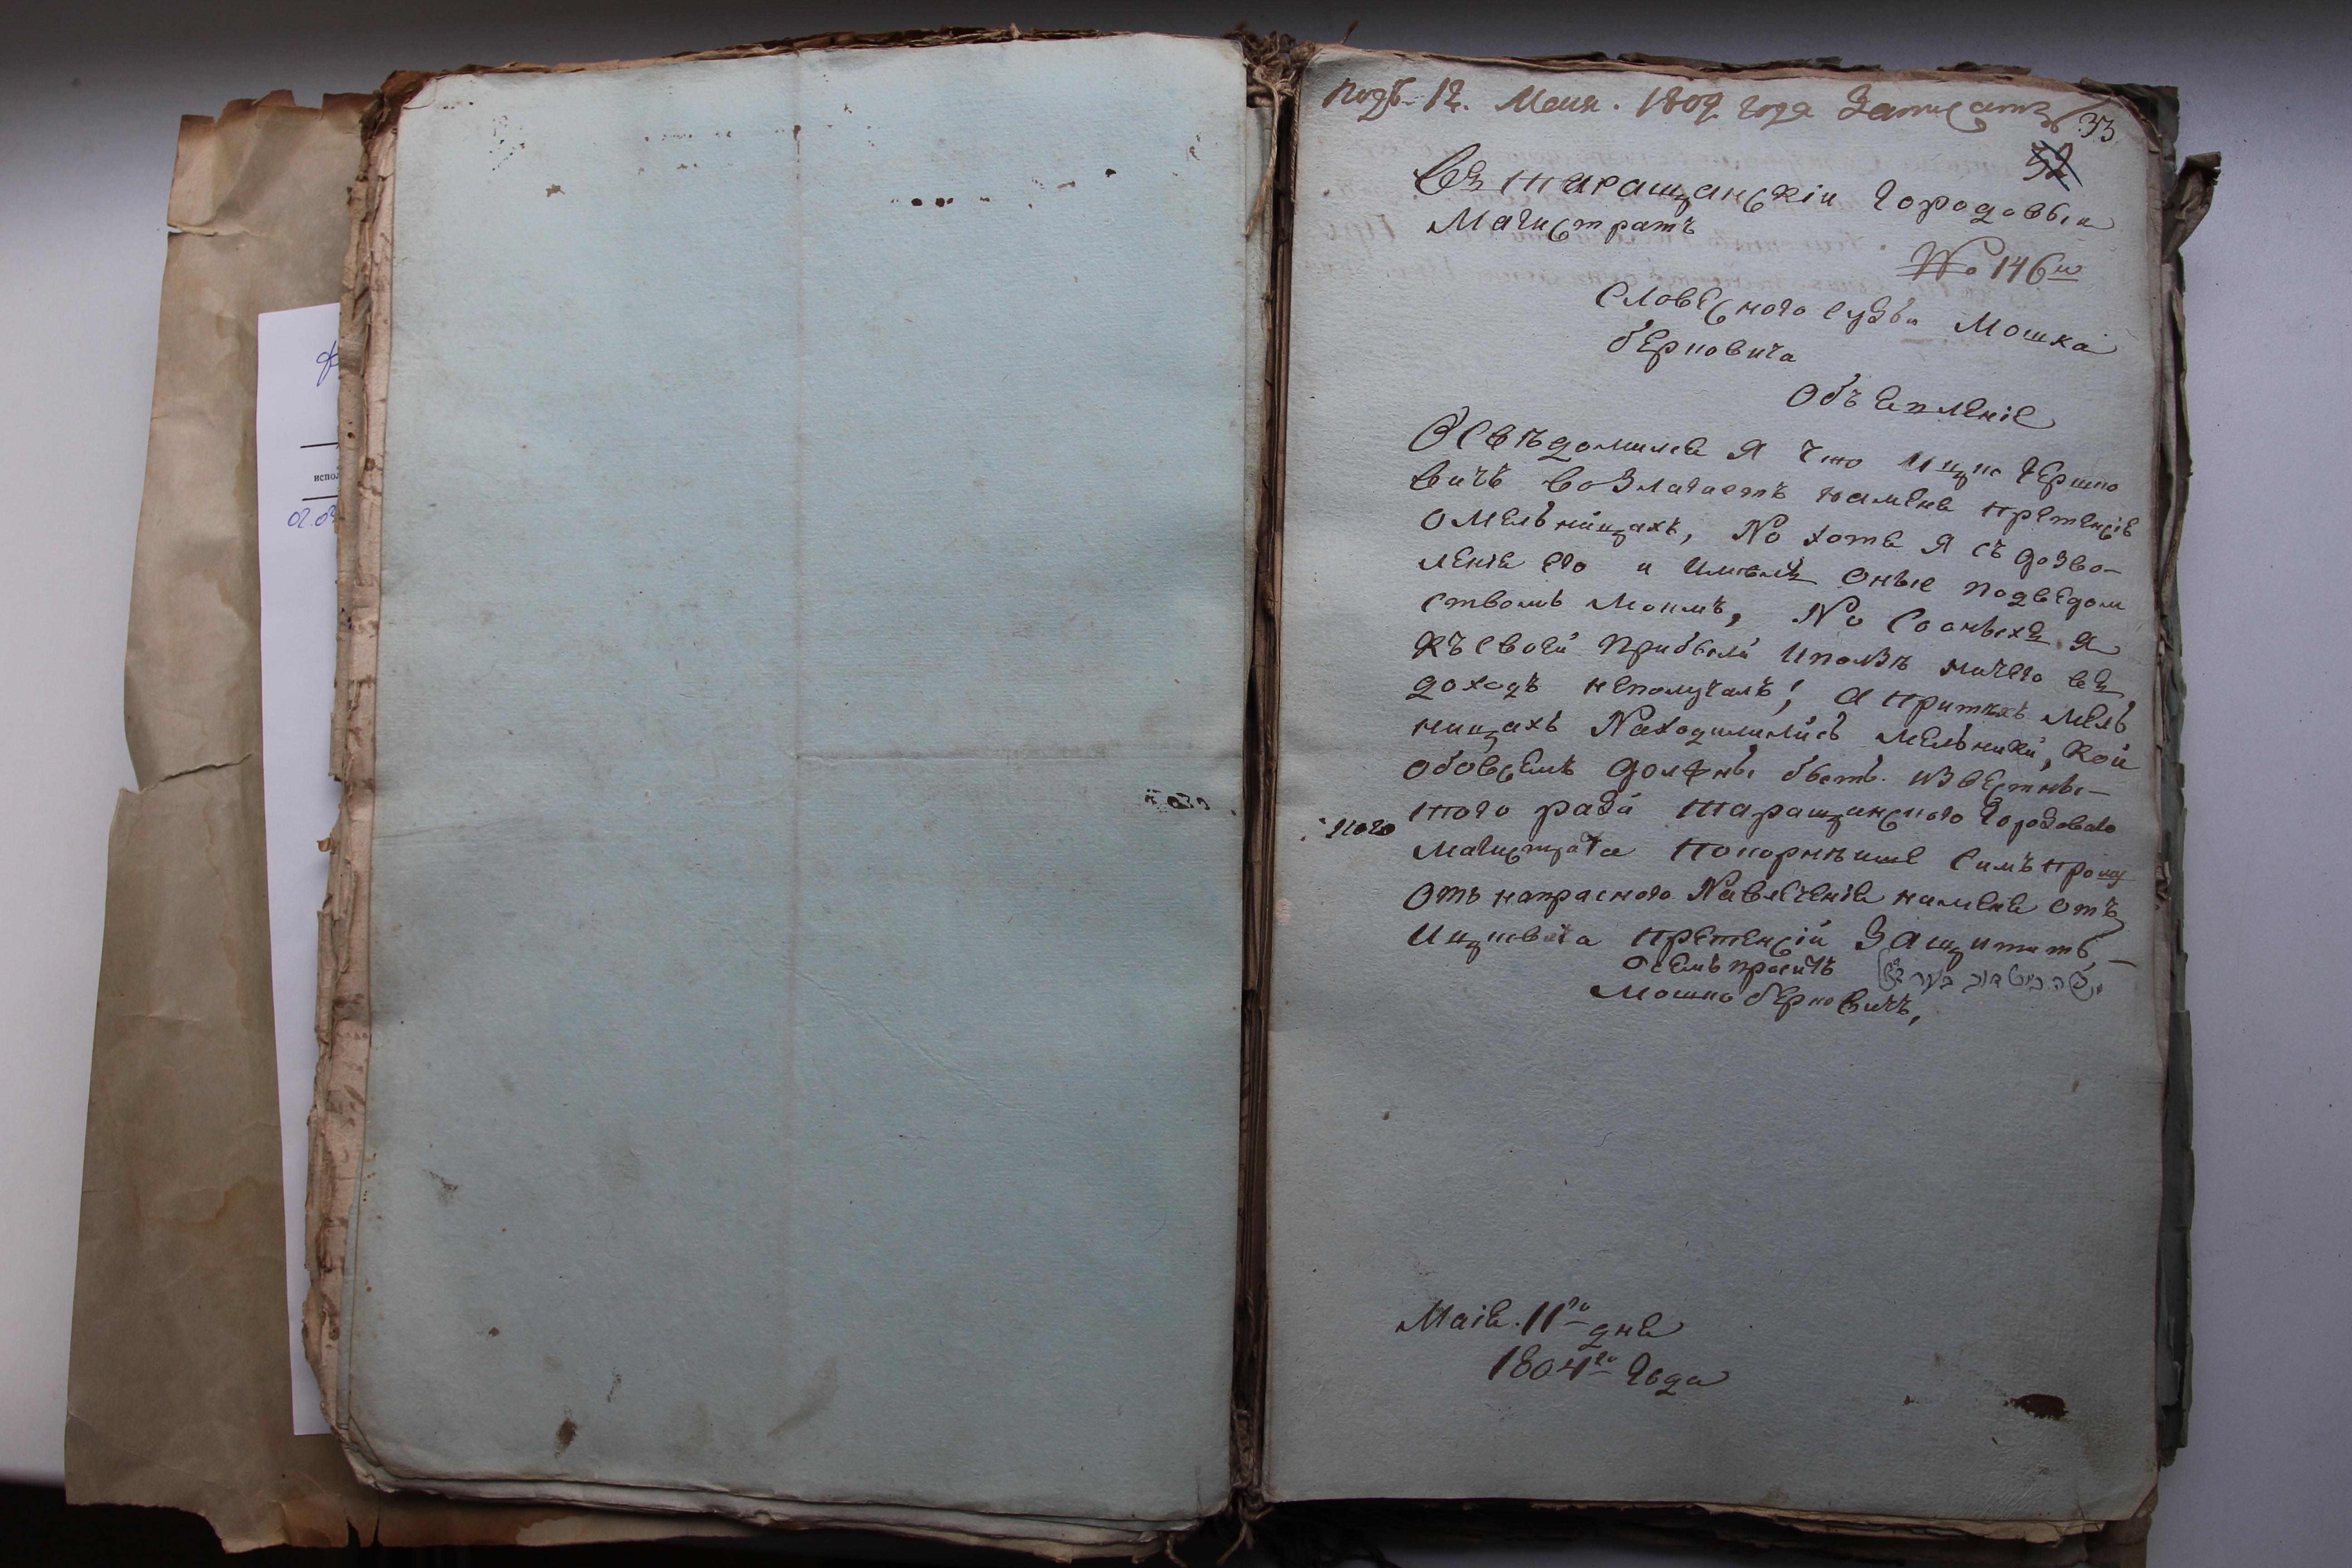 Подъ 12. Маия. 1804 года Записать
33
32
Въ таращанскіи городовыи
Магистратъ
No 146й
Словесного судьи Мошка
берковича
Объявленіе
Освѣдомился я что Ицко гершко
вичъ возлагаетъ наменя претенсіе
омельницахъ, No хотя я съ дозво-
ленія его и имелъ оные подведом
ствомъ моимъ, No соонихъ я
къ своей прибыли иползѣ ничего въ
доходъ неполучалъ; а притѣхъ мель
ницахъ Находилились мельники, кои
обовсемъ должны быть известны-
того ради таращанского городоваго
ного
магистрата покорнѣише симъ прошу
отъ напрасного Навлеченія наменя отъ
Ицковича претенсій Защитить,-
осемъ проситъ
Мошко берковичъ,
Маія. 11го дня
1804го года